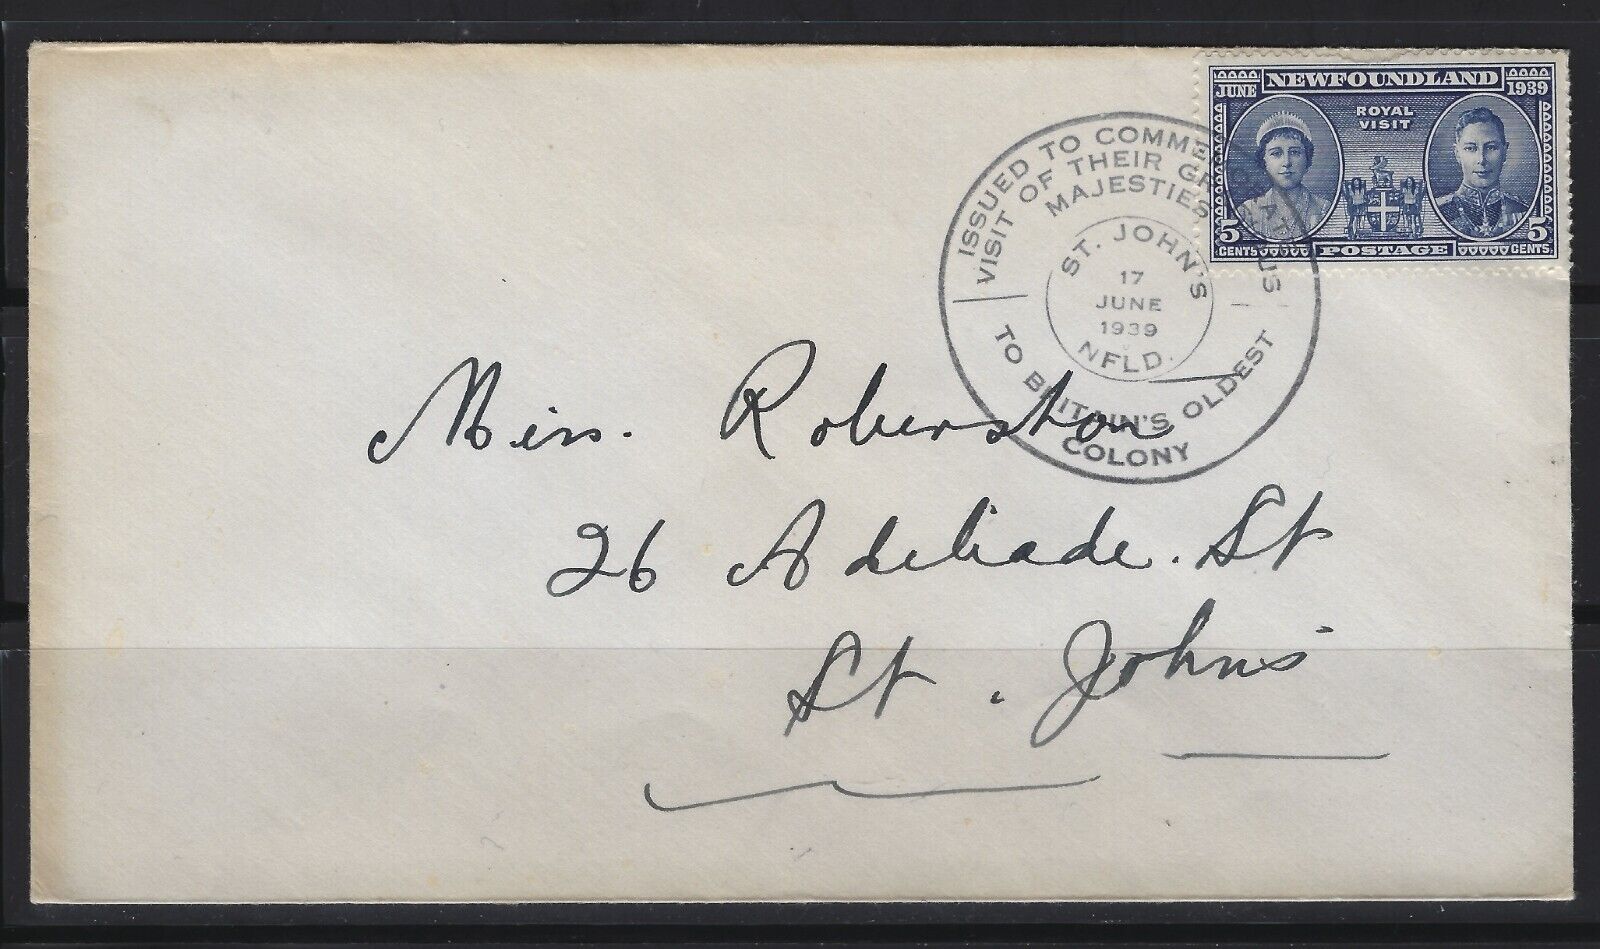 JUNE NEWFOUNDLAND 1939
ROYAL
VISIT
5 CENTS POSTAGE 5 CENTS
ISSUED TO COMMEMORATE
VISIT OF THEIR GRACIOUS
MAJESTIES
ST. JOHN'S
17
JUNE
1939
NFLD.
TO BRITAIN'S OLDEST
COLONY
Miss. Roberston
26 Adeliade. St
St. John's